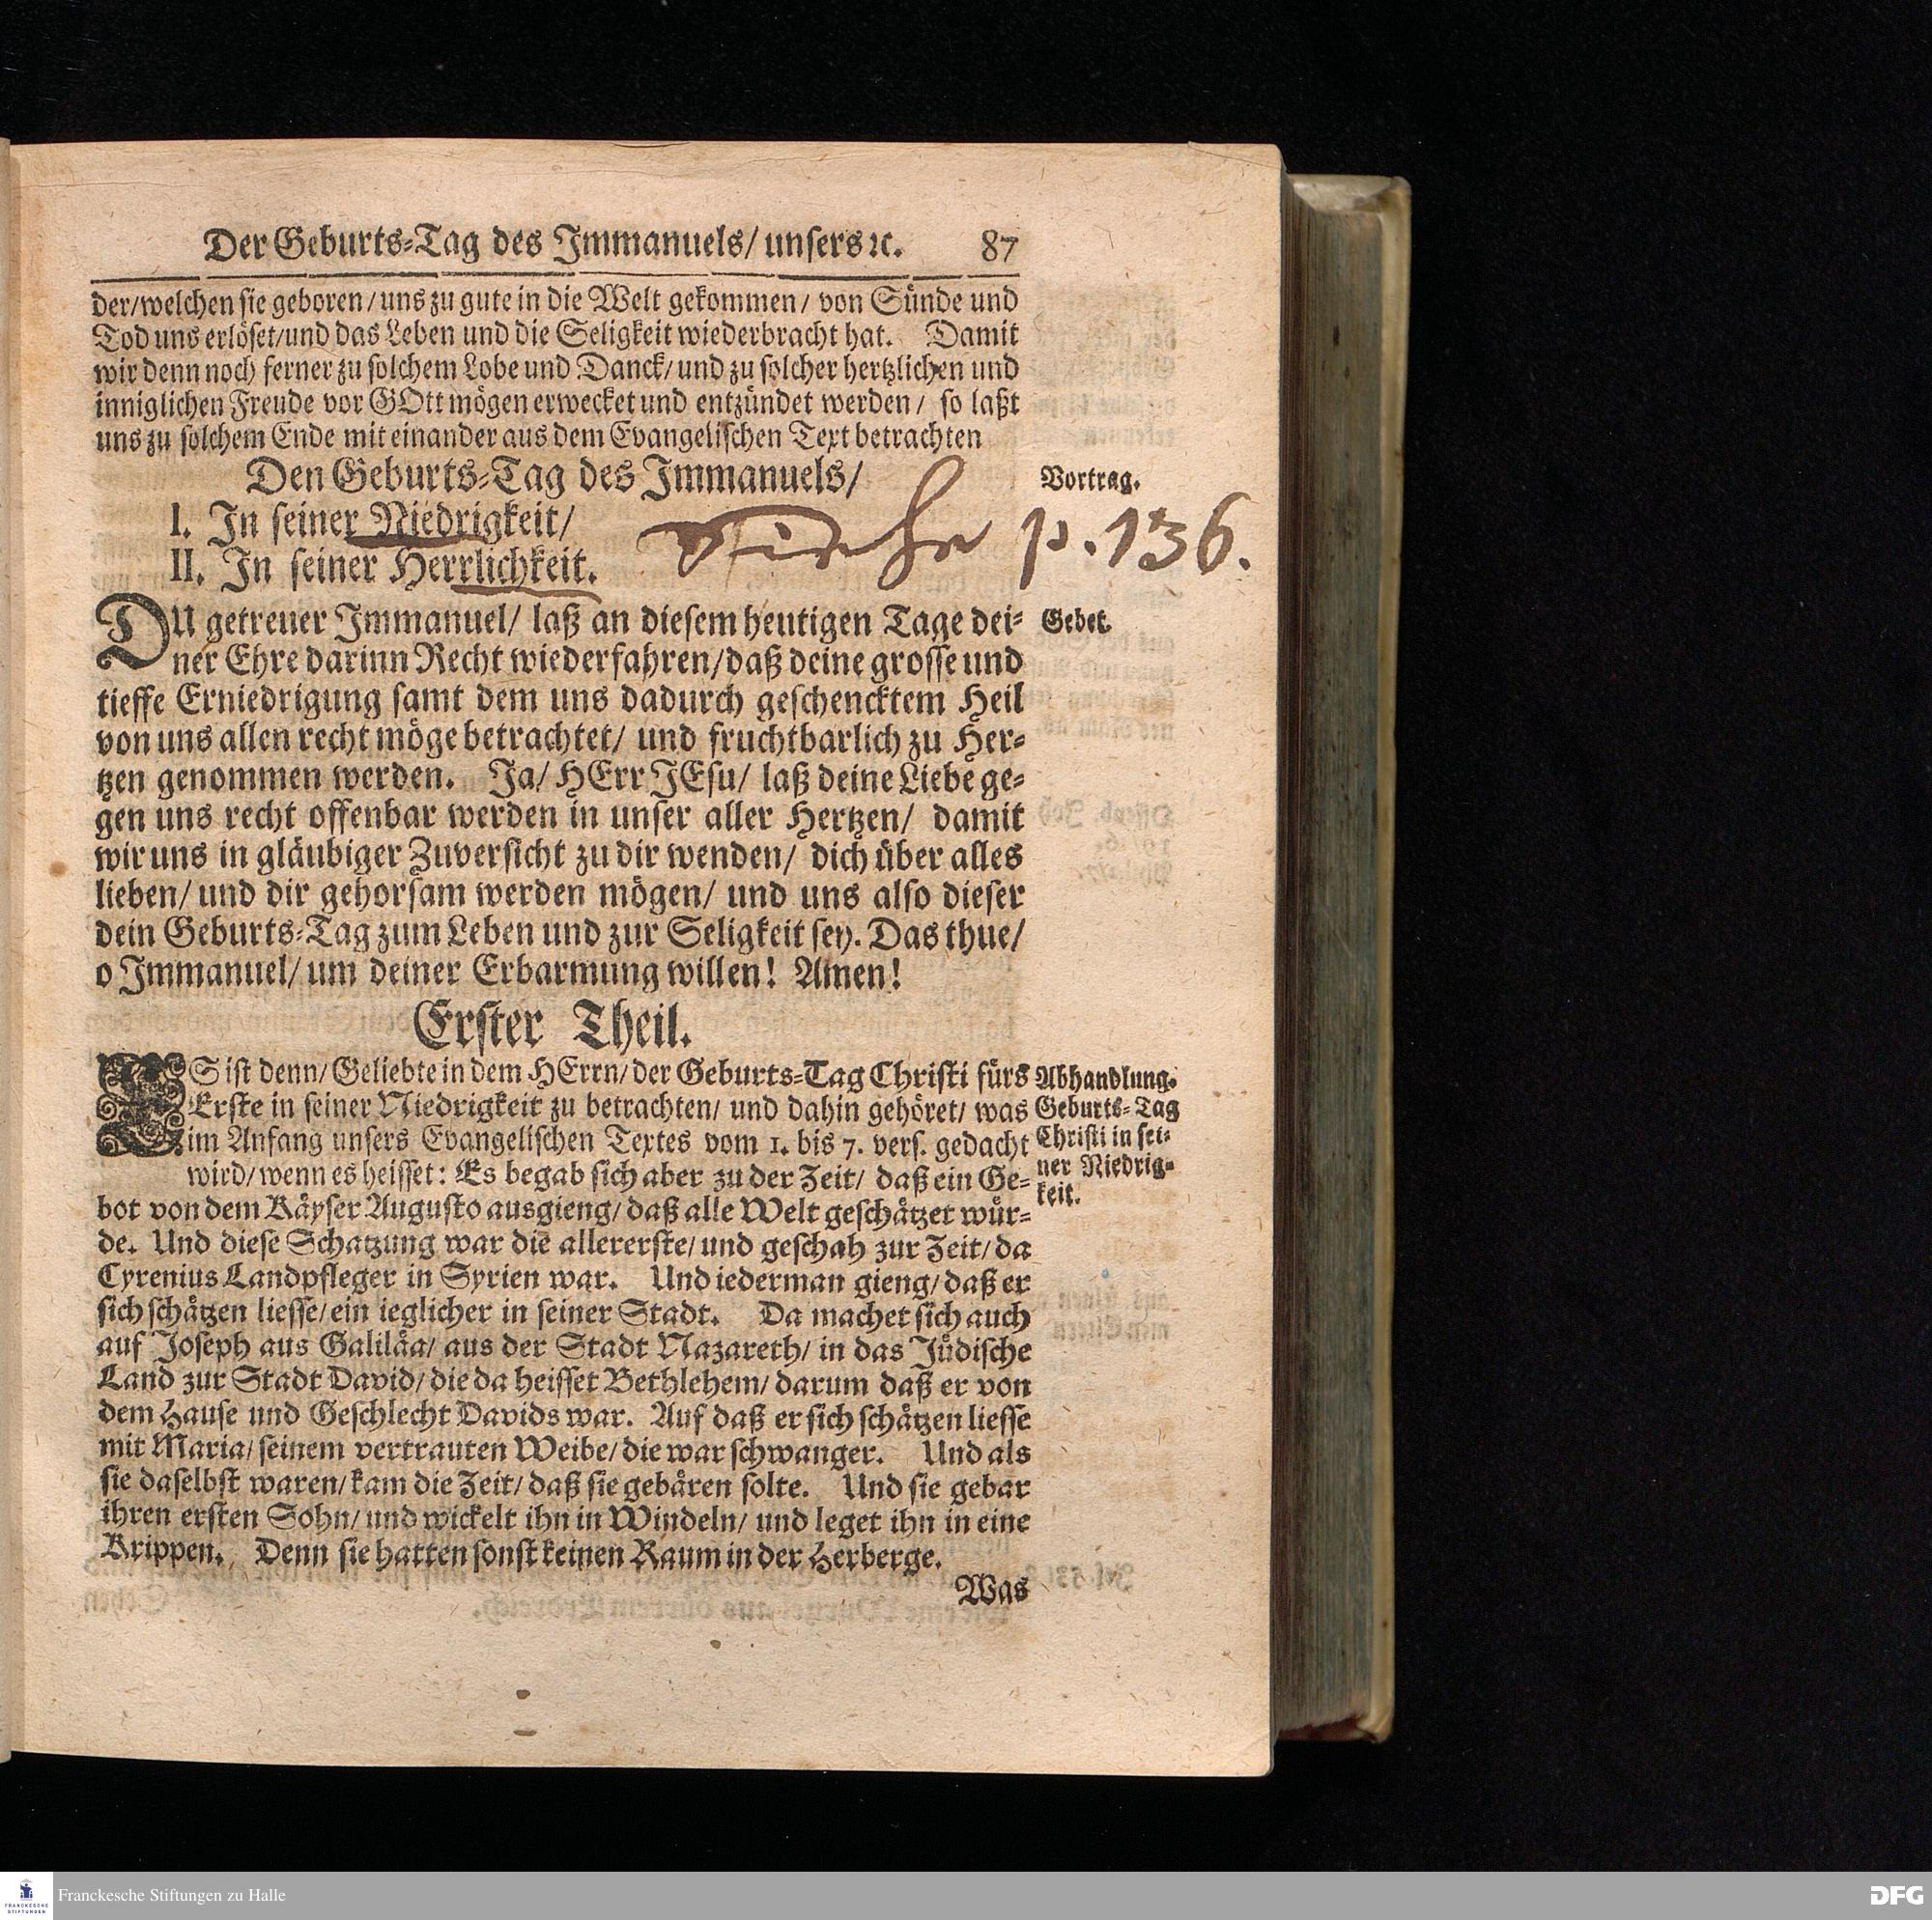 Der Geburts-Tag des Immanuels/ unsers ꝛc. 87
der/welchen sie geboren/uns zu gute in die Welt gekommen/ von Sünde und
Tod uns erlöset/und das Leben und die Seligkeit wiederbracht hat. Damit
wir denn noch ferner zu solchem Lobe und Danck/ und zu solcher hertzlichen und
inniglichen Freude vor GOtt mögen erwecket und entzündet werden/ so laßt
uns zu solchem Ende mit einander aus dem Evangelischen Text betrachten
Den Geburts-Tag des Immanuels/
Vortrag.
I. In seiner Niedrigkeit/
II. In seiner Herrlichkeit.
siehe p. 136.
DU getreuer Immanuel/ laß an diesem heutigen Tage dei-
Gebet.
ner Ehre darinn Recht wiederfahren/daß deine grosse und
tieffe Erniedrigung samt dem uns dadurch geschencktem Heil
von uns allen recht möge betrachtet/ und fruchtbarlich zu Her-
tzen genommen werden. Ja/ HErr JEsu/ laß deine Liebe ge-
gen uns recht offenbar werden in unser aller Hertzen/ damit
wir uns in gläubiger Zuversicht zu dir wenden/ dich über alles
lieben/ und dir gehorsam werden mögen/ und uns also dieser
dein Geburts-Tag zum Leben und zur Seligkeit sey. Das thue/
o Immanuel/ um deiner Erbarmung willen! Amen!
Erster Theil.
ES ist denn/ Geliebte in dem HErrn/ der Geburts-Tag Christi fürs
Erste in seiner Niedrigkeit zu betrachten/ und dahin gehöret/ was
im Anfang unsers Evangelischen Textes vom 1. bis 7. vers. gedacht
wird/ wenn es heisset: Es begab sich aber zu der Zeit/ daß ein Ge-
bot von dem Käyser Augusto ausgieng/ daß alle Welt geschätzet wür-
de. Und diese Schatzung war die allererste/ und geschah zur Zeit/ da
Cyrenius Landpfleger in Syrien war. Und iederman gieng/ daß er
sich schätzen liesse/ ein ieglicher in seiner Stadt. Da machet sich auch
auf Joseph aus Galiläa/ aus der Stadt Nazareth/ in das Jüdische
Land zur Stadt David/ die da heisset Bethlehem/ darum daß er von
dem Hause und Geschlecht Davids war. Auf daß er sich schätzen liesse
mit Maria/ seinem vertrauten Weibe/ die war schwanger. Und als
sie daselbst waren/ kam die Zeit/ daß sie gebären solte. Und sie gebar
ihren ersten Sohn/ und wickelt ihn in Windeln/ und leget ihn in eine
Krippen. Denn sie hatten sonst keinen Raum in der Herberge.
Abhandlung.
Geburts-Tag
Christi in sei-
ner Niedrig-
keit.
Was
FRANCKESCHE
STIFTUNGEN
Franckesche Stiftungen zu Halle
DFG